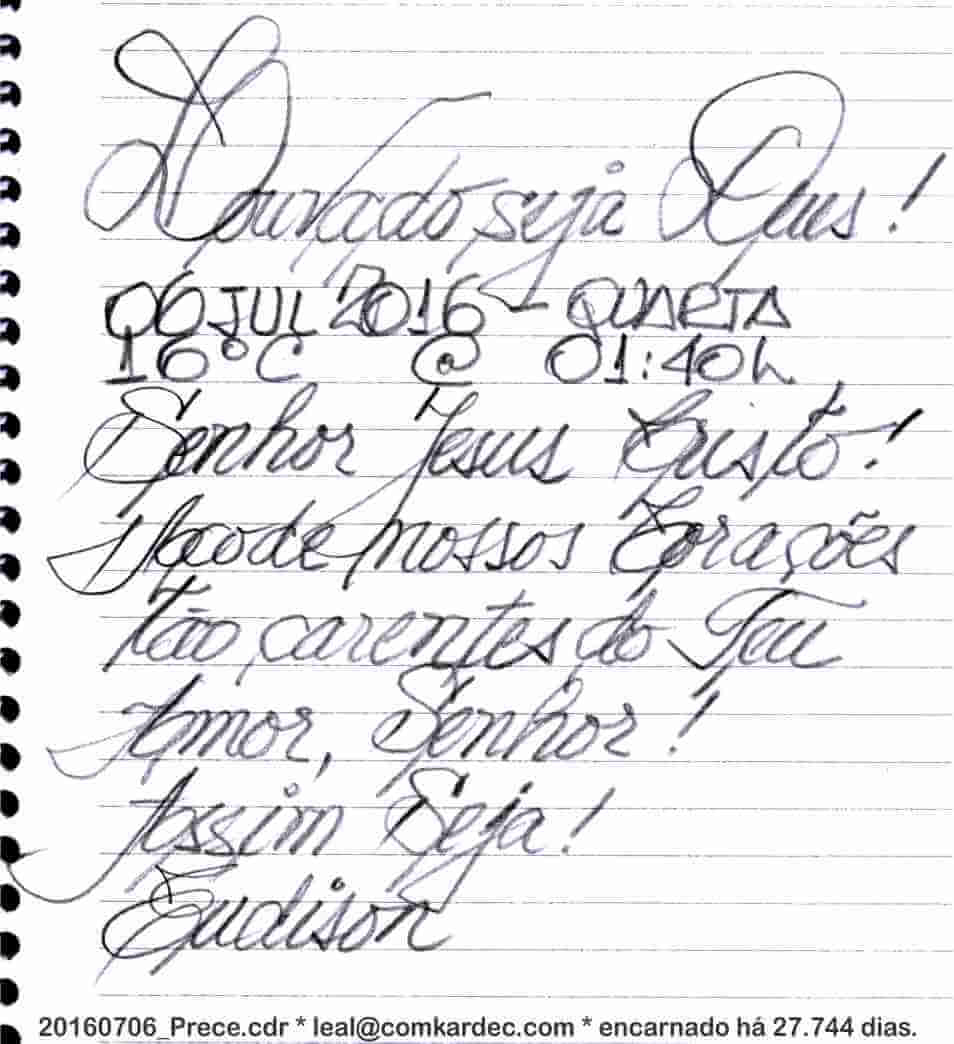 Louvado seja Deus!
06 JUL 2016 - QUARTA
16°C @ 01:40h
Senhor Jesus Cristo!
Acode nossos Corações
tão carentes do Teu
Amor, Senhor!
Assim Seja!
Eudison
20160706_Prece.cdr * leal@comkardec.com * encarnado há 27.744 dias.